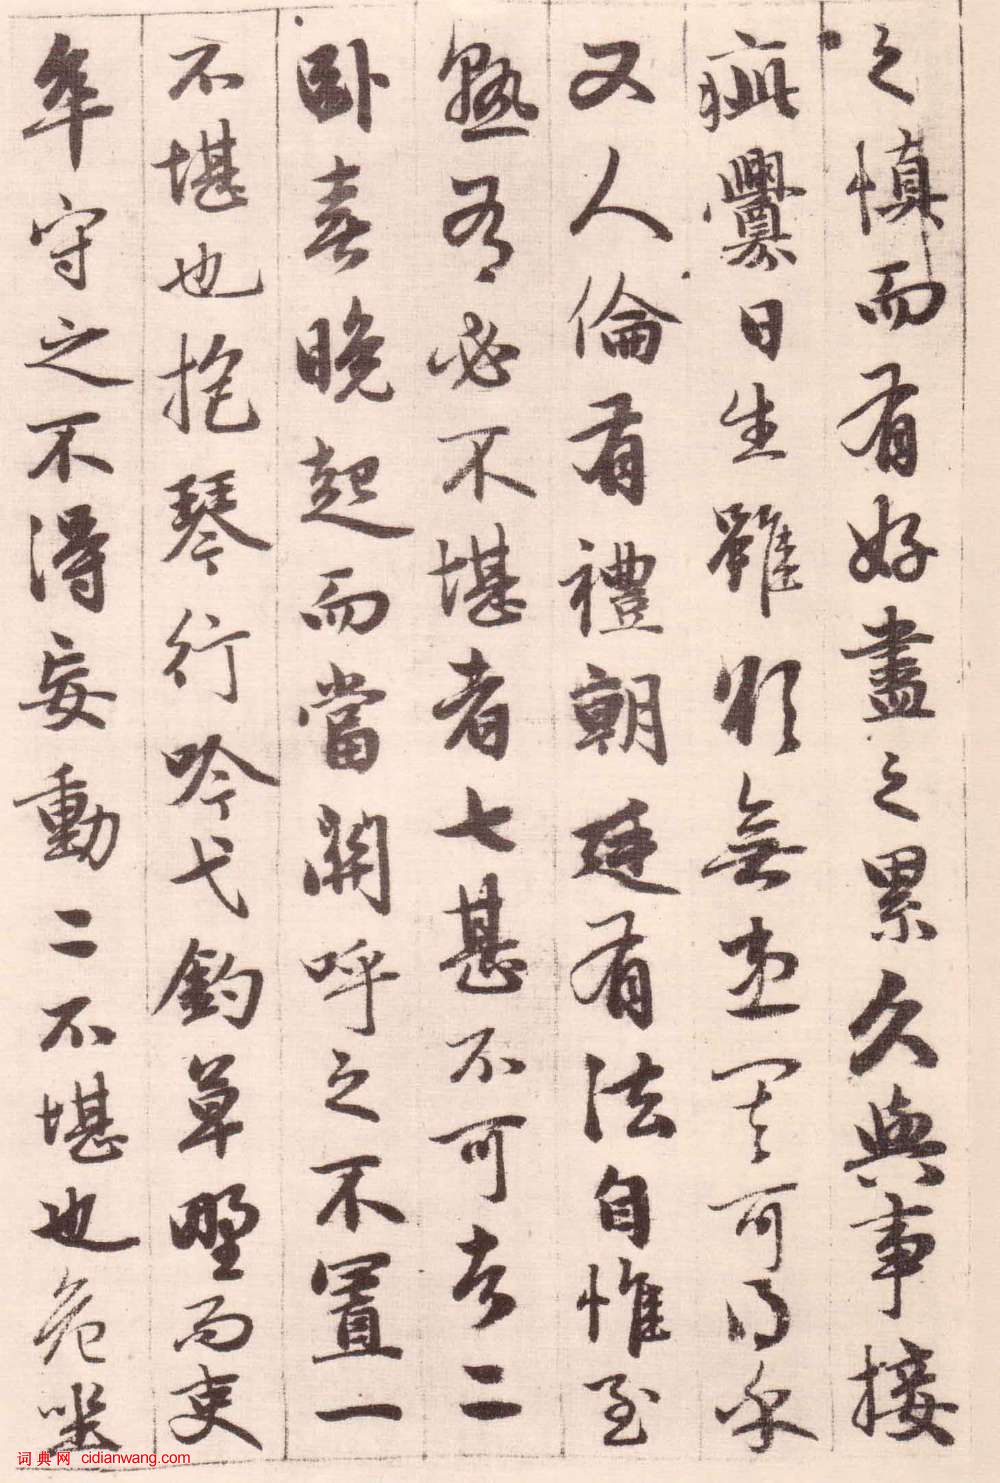 之慎而有好盡之累久與事接
疵釁日生雖欲無患其可得乎
又人倫有禮朝廷有法自惟至
熟有必不堪者七甚不可者二
卧喜晚起而當關呼之不置一
不堪也抱琴行吟弋釣草野而吏
卒守之不得妄動二不堪也危坐
词典网 cidianwang.com